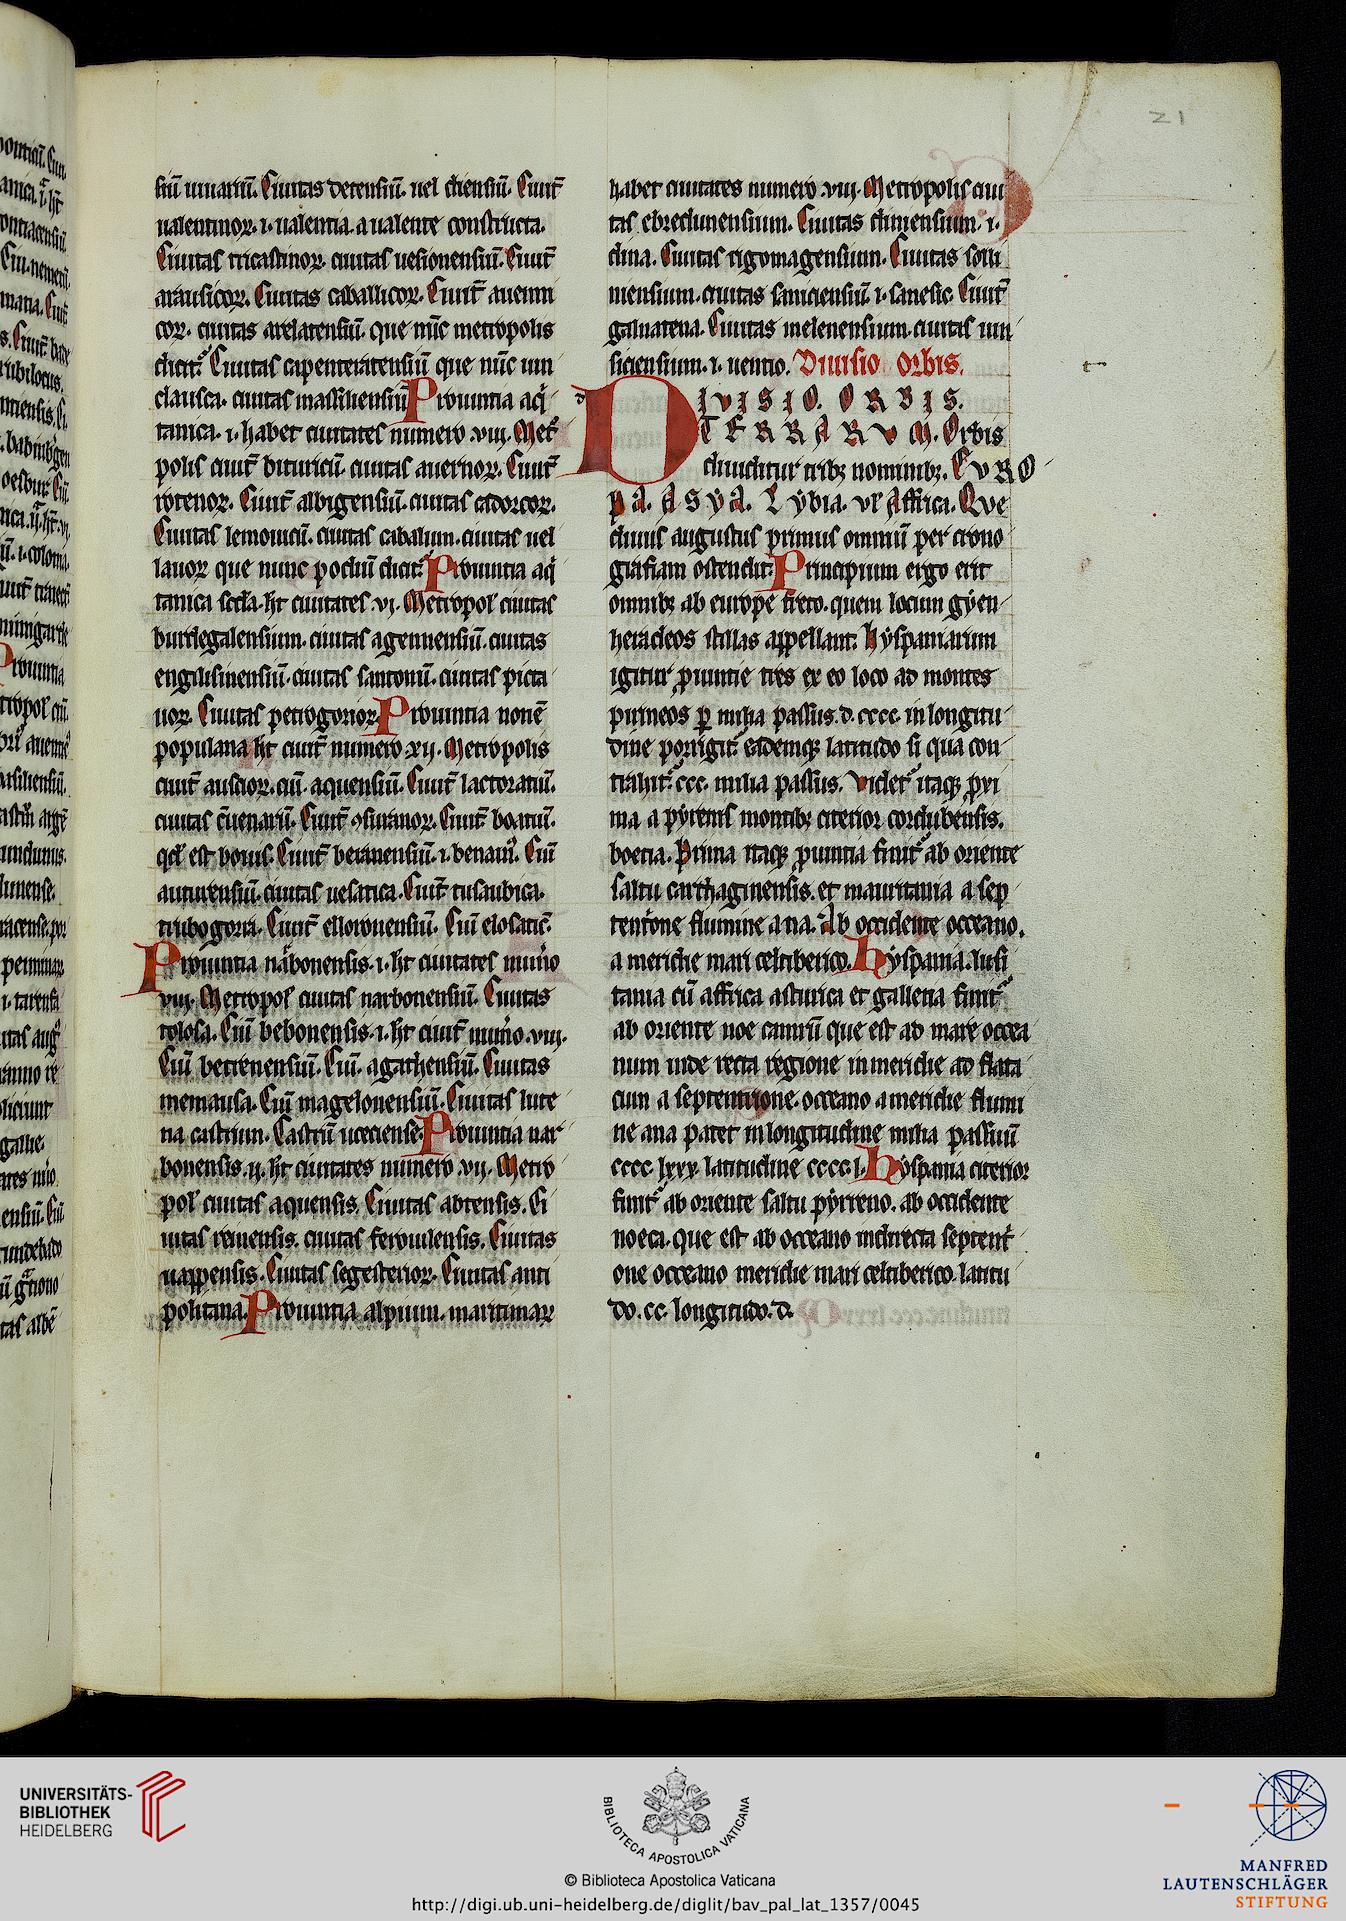 21
siū uiuariū. Ciuitas decensiū. uel diensiū. Ciuit̄
ualentinoꝝ. i. ualentia. a ualente constructa.
Ciuitas tricastinoꝝ. ciuitas uesionensiū. Ciuit̄
arausicoꝝ. Ciuitas caballicoꝝ. Ciuit̄ auenni
coꝝ. ciuitas arelatensiū. que nūc metropolis
dicit᷑. Ciuitas capenteratensiū que nūc uin
clausca. ciuitas massiliensiū. Prouintia aq̇
tanica. i. habet ciuitates numero .viii. Met̉
polis ciuit̄ bituricū. ciuitas auernoꝝ. Ciuit̄
rotenoꝝ. Ciuit̄ albigensiū. ciuitas cadorcoꝝ.
Ciuitas lemouicū. ciuitas cabalium. ciuitas uel
lauoꝝ que nunc podiū dicit᷑. Prouintia aq̇
tanica scd̄a. ht̄ ciuitates .vi. Metropol̄ ciuitas
burdegalensium. ciuitas agennensiū. ciuitas
englisinensiū. ciuitas santonū. ciuitas picta
uoꝝ. Ciuitas petrogorioꝝ. Prouintia nouē
populana ht̄ ciuit̄ numero .xii. Metropolis
ciuit̄ auscioꝝ. ciū. aquensiū. Ciuit̄ lactoratiū.
ciuitas c̄uenarū. Ciuit̄ ꝯsuranoꝝ. Ciuit̄ boatiū.
qd̄ est bouis. Ciuit̄ beranensiū. i. benarn̄. Ciū
auturensiū. ciuitas uesatica. Ciuit̄ tusaubica.
trubogoria. Ciuit̄ elloronensiū. Ciū elosatiē.
Prouintia nabonensis. i. ht̄ ciuitates num̉o
viii. Metropol̄ ciuitas narbonensiū. Ciuitas
tolosa. Ciū bebonensis. i. ht̄ ciuit̄ num̉o .viii.
Ciū betrenensiū. Ciū. agathensiū. Ciuitas
nemausa. Ciū magelonensiū. Ciuitas lute
na castrum. Castrū uceciense. Prouintia nar
bonensis .ii. ht̄ ciuitates numero .vii. Metro
pol̄ ciuitas aquensis. Ciuitas abtensis. Ci
uitas reuensis. ciuitas feroiulensis. Ciuitas
uappensis. Ciuitas segesterioꝝ. Ciuitas anti
politana. Prouintia alpium. maritimaꝝ
habet ciuitates numero .viii. Metropolis ciui
tas ebredunensium. Ciuitas diniensium. i.
dina. Ciuitas rigomagensium. Ciuitas solli
niensium. ciuitas saniciensiū. i. sanesic. Ciuit̄
galnatena. Ciuitas melenensium. ciuitas uin
siciensium. i. uentio. Diuisio Orbis.
DIVISIO. ORBIS.
TERRARVM. Orbis
diuiditur tribꝫ nominibꝫ. EVRO
PA. ASYA. Lybia. vl̄ Affrica. Que
diuus augustus primus omniū per crono
grafiam ostendit. Principium ergo erit
omnibꝫ ab europe freto. quem locum gyen
heracleos stillas appellant. Hyspaniarum
igitur ꝓuintie tres ex eo loco ad montes
pirineos ꝑ milia passus .d.cccc. in longitu
dine porrigit᷑. eademqꝫ latitudo si qua con
trahit᷑ ccc. milia passus. Videt᷑ itaqꝫ pri
ma a pyrenis montibꝫ citerior cordubensis.
boetia. Prima itaqꝫ ꝓuintia finit᷑ ab oriente
saltu carthaginensis. et mauritania a sep
tent̉one flumine ana. Ab occidente occeano.
a meridie mari celtiberico. Hyspania. lusi
tania cū affrica asturica et galletia finit᷑
ab oriente noe cantrū que est ad mare occea
num inde recta regione in meridie ad flata
cium a septemtrione. occeano a meridie flumi
ne ana patet in longitudine milia passuū
cccc. lxxx. latitudine cccc.l. Hyspania citerior
finit᷑ ab oriente saltu pyrreno. ab occidente
noeca. que est ab occeano indirecta septent̉
one occeano meridie mari celtiberico. latitu
do .cc. longitudo .d.
UNIVERSITÄTS-
BIBLIOTHEK
HEIDELBERG
BIBLIOTECA APOSTOLICA VATICANA
© Biblioteca Apostolica Vaticana
http://digi.ub.uni-heidelberg.de/diglit/bav_pal_lat_1357/0045
MANFRED
LAUTENSCHLÄGER
STIFTUNG